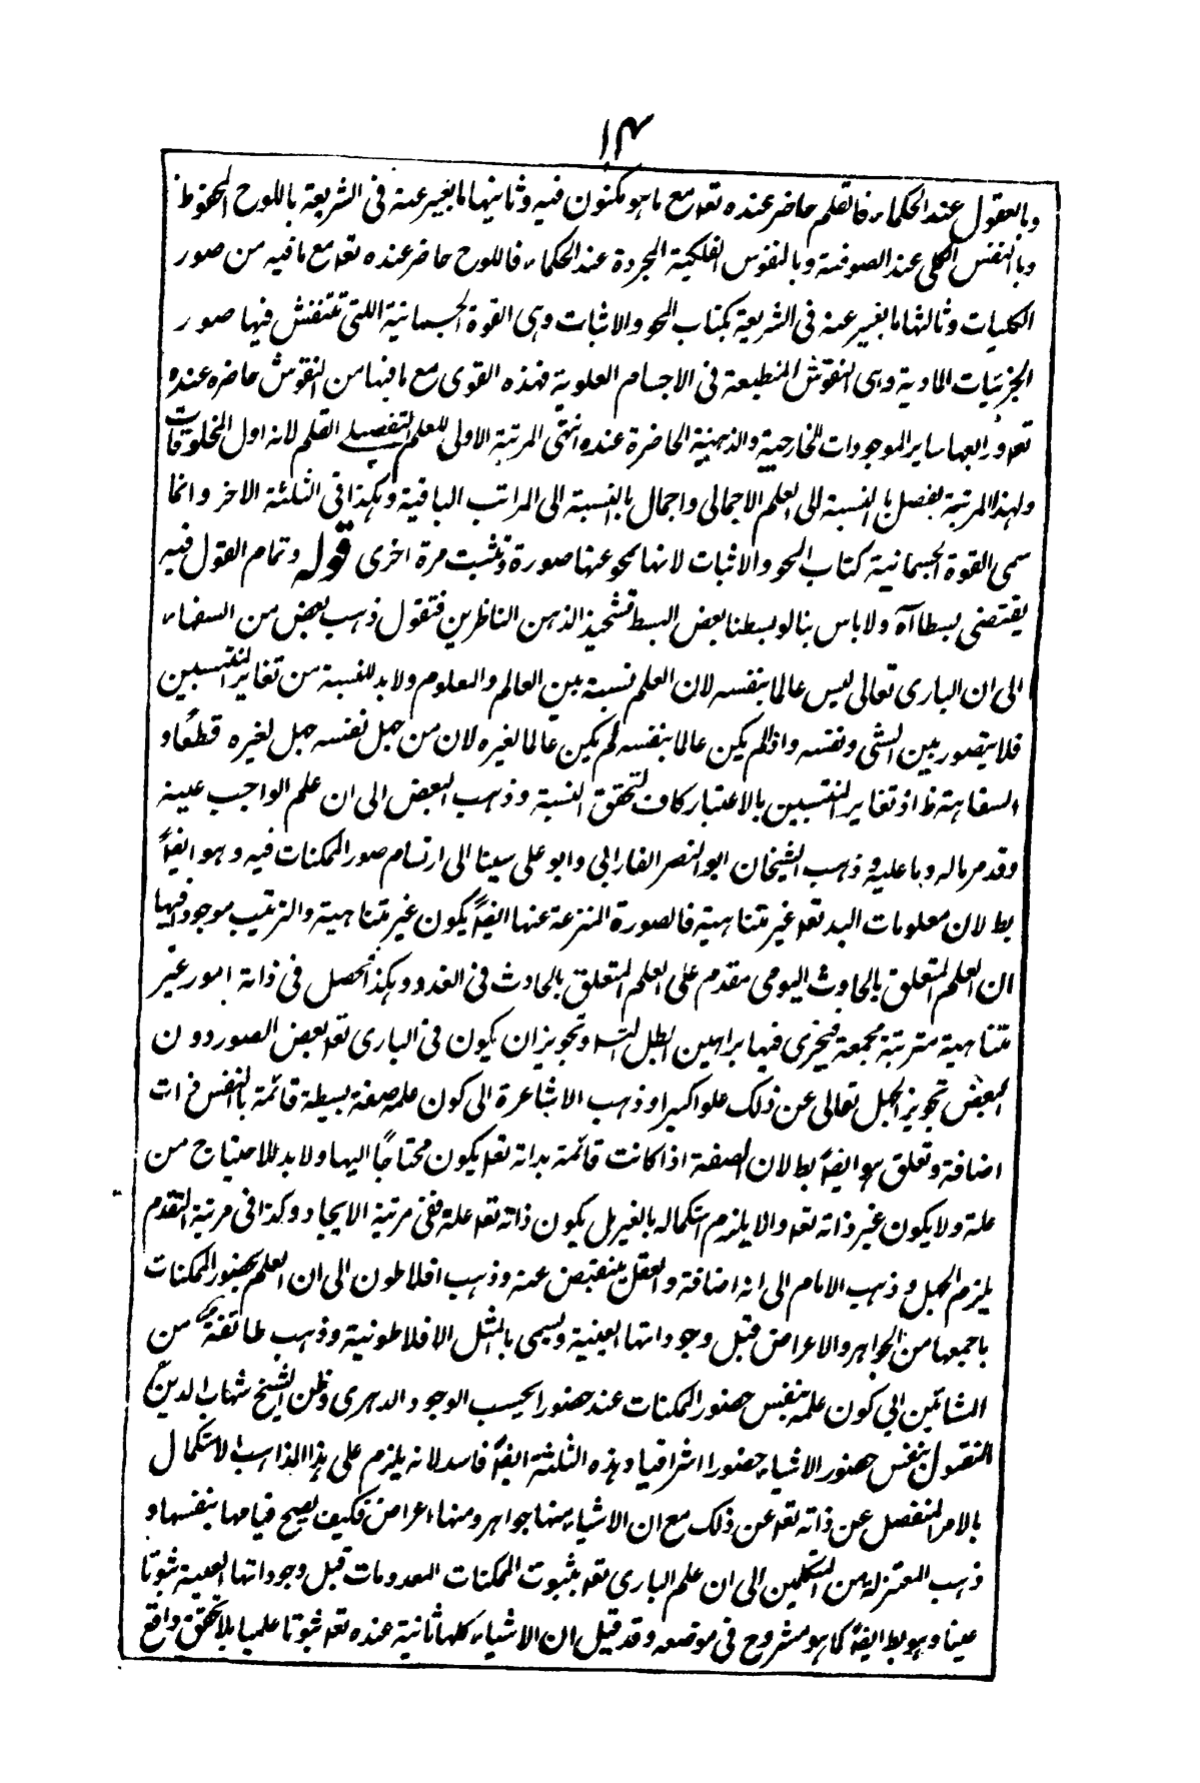 ۱۴
وبالعقول عند الحكماء فالقلم حاضر عنده تعـ مع ما هو مكنون فيه وثانيها ما يعبر عنه فى الشريعة باللوح المحفوظ
وبالنفس الكلى عند الصوفية وبالنفوس الفلكية المجردة عند الحكماء فاللوح حاضر عنده تعـ مع ما فيه من صور
الكليات وثالثها ما يعبر عنه فى الشريعة بكتاب المحو والاثبات وهى القوة الجسمانية اللتى تنتقش فيها صور
الجزئيات المادية وهى النقوش المنطبعة فى الاجسام العلوية فهذه القوى مع ما فيها من النقوش حاضره عنده
تعـ ورابعها ساير الموجودات الخارجية والذهنية الحاضرة عنده انتهى المرتبة الاولى للعلم التفصيلے القلم لانه اول المخلوقات
ولهذا المرتبة تفصل بالنسبة الى العلم الاجمالى واجمال بالنسبة الى المراتب الباقية وهكذا فى الثلثة الاخر وانما
سمى القوة الجسمانية كتاب المحو والاثبات لانها يمحو عنها صورة وتثبت مرة اخرى قوله وتمام القول فيه
يقتضى بسطا آه ولا باس بنا لو بسطنا بعض البسط تشحيذ الذهن الناظرين فنقول ذهب بعض من السفهاء
الى ان البارى تعالى ليس عالما بنفسه لان العلم نسبة بين العالم والمعلوم ولا بد للنسبة من تغاير المنتسبين
فلا يتصور بين الشئ ونفسه واذا لم يكن عالما بنفسه لم يكن عالما لغيره لان من جهل نفسه جهل لغيره قطعًا و
السفاهة ظ اذ تغاير المنتسبين بالاعتبار كاف لتحقق النسبة وذهب البعض الى ان علم الواجب عينه
وقد مر ماله وما عليه وذهب الشيخان ابو النصر الفارابى وابو على سينا الى ارتسام صور الممكنات فيه وهو ايضًا
بط لان معلومات البد تعـ غير متناهية فالصورة المنزعة عنها ايضًا يكون غير متناهية والترتيب موجود فيها
ان العلم المتعلق بالحادث اليومى مقدم على العلم المتعلق بالحادث فى الغد وهكذا تحصل فى ذاته امور غير
متناهية مترتبة مجتمعة فيجرى فيها براهين ابطال التسـ وتجويز ان يكون فى البارى تعـ بعض الصور دون
البعض تجويز الجهل تعالى عن ذلك علوا كبيرا وذهب الاشاعرة الى كون علمه صفة بسيطة قائمة بالنفس ذات
اضافة وتعلق هو ايضًا بط لان الصفة اذا كانت قائمة بذاته تعـ يكون محتاجًا اليها ولا بد للاحتياج من
علة ولا يكون غير ذاته تعـ والا يلزم استكماله بالغير بل يكون ذاته تعـ علة ففى مرتبة الايجاد وكذا فى مرتبة التقدم
يلزم الجهل وذهب الامام الى انه اضافة والعقل ينقبض عنه وذهب افلاطون الى ان العلم بحضور الممكنات
باجمعها من الجواهر والاعراض قبل وجوداتها العينية ويسمى بالمثل الافلاطونية وذهب طائفة من
المشائين الى كون علمه بنفس حضور الممكنات عنده حضورا بحسب الوجود الدهرى وظن الشيخ شهاب الدين
المقتول بنفس حضور الاشياء حضورا اشراقيا وهذه الثلثة ايضًا فاسد لانه يلزم على هذا المذاهب الاستكمال
بالامر المنفصل عن ذاته تعـ عن ذلك مع ان الاشياء منها جواهر ومنها اعراض فكيف يصح قيامها بنفسها و
ذهب المعتزلة من المتكلمين الى ان علم البارى تعـ بثبوت الممكنات المعدومات قبل وجوداتها العينية ثبوتا
عينا وهو بط ايضًا كما هو مشروح فى موضعه وقد قيل ان الاشياء كلها ثابتة عنده تعـ ثبوتا علميا بلا تحقق واقع